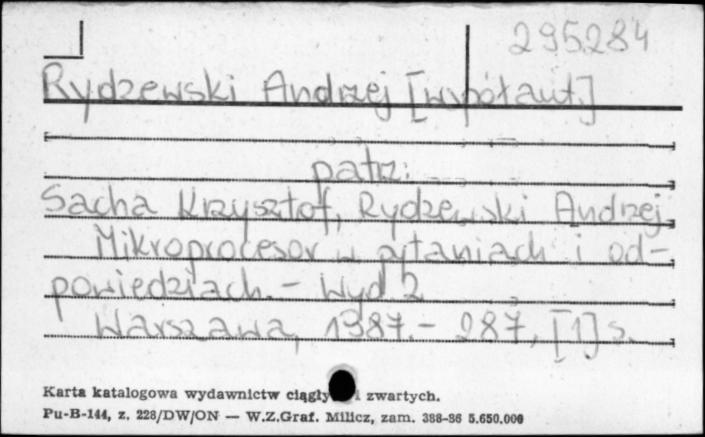 295284
Rydzewski Andrzej [współaut.]
patrz:
Sacha Krzysztof, Rydzewski Andrzej
Mikroprocesor w pytaniach i od-
powiedziach. - Wyd 2
Warszawa, 1987. - 287, [1] s.
Karta katalogowa wydawnictw ciągły i zwartych.
Pu-B-144, z. 228/DW/ON — W.Z.Graf. Milicz, zam. 388-86 5.650.000